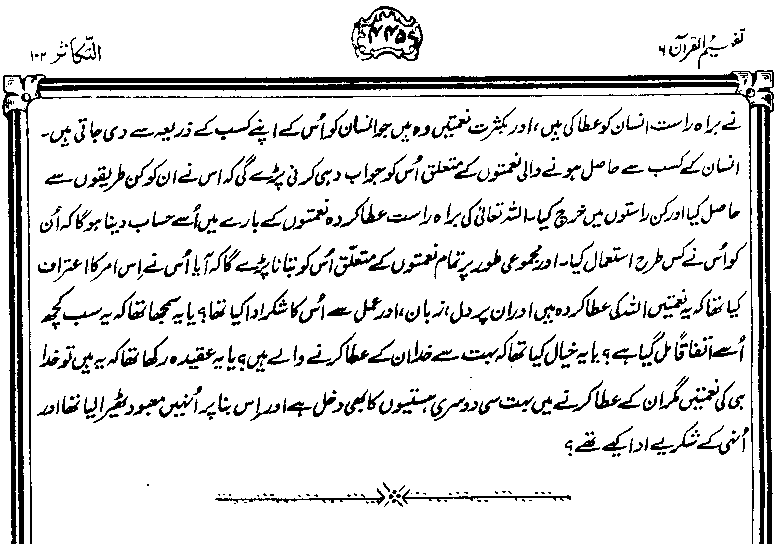 تفہیم القرآن ۶
۴۴۵
التکاثر ۱۰۲
نے براہ راست انسان کو عطا کی ہیں، اور بکثرت نعمتیں وہ ہیں جو انسان کو اُس کے اپنے کسب کے ذریعہ سے دی جاتی ہیں۔
انسان کے کسب سے حاصل ہونے والی نعمتوں کے متعلق اُس کو جواب دہی کرنی پڑے گی کہ اس نے ان کو کن طریقوں سے
حاصل کیا اور کن راستوں میں خرچ کیا۔ اللہ تعالیٰ کی براہ راست عطا کردہ نعمتوں کے بارے میں اُسے حساب دینا ہوگا کہ اُن
کو اُس نے کس طرح استعمال کیا۔ اور مجموعی طور پر تمام نعمتوں کے متعلق اُس کو بتانا پڑے گا کہ آیا اُس نے اِس امر کا اعتراف
کیا تھا کہ یہ نعمتیں اللہ کی عطا کردہ ہیں اور ان پر دل، زبان، اور عمل سے اُس کا شکر ادا کیا تھا؟ یا یہ سمجھا تھا کہ یہ سب کچھ
اُسے اتفاقاً مل گیا ہے؟ یا یہ خیال کیا تھا کہ بہت سے خدا ان کے عطا کرنے والے ہیں؟ یا یہ عقیدہ رکھا تھا کہ یہ ہیں تو خدا
ہی کی نعمتیں مگر ان کے عطا کرنے میں بہت سی دوسری ہستیوں کا بھی دخل ہے اور اِس بنا پر اُنہیں معبود ٹھیرا لیا تھا اور
اُنہی کے شکریے ادا کیے تھے؟